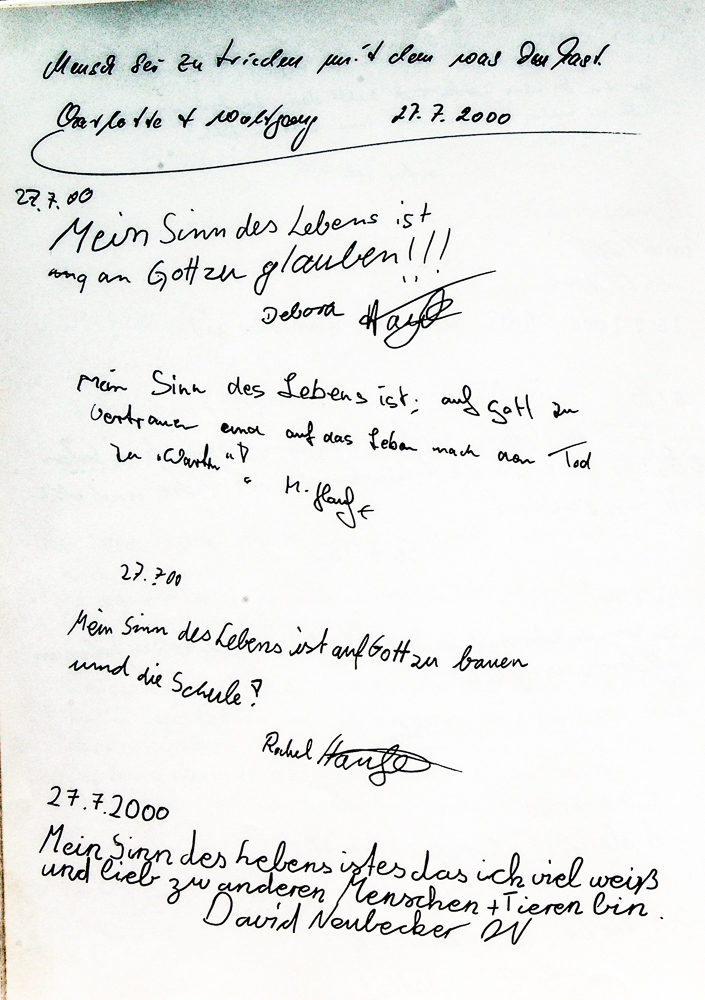 Mensch sei zufrieden mit dem was Du hast.
Charlotte + Wolfgang 27.7.2000
27.7.00
Mein Sinn des Lebens ist
an Gott zu glauben!!!
Debora
Mein Sinn des Lebens ist; auf Gott zu
Vertrauen und auf das Leben nach dem Tod
zu "Warten"!
M.
27.7.00
Mein Sinn des Lebens ist auf Gott zu bauen
und die Schule!
Rahel
27.7.2000
Mein Sinn des Lebens ist es das ich viel weiß
und lieb zu anderen Menschen + Tieren bin.
David Neubecker DN